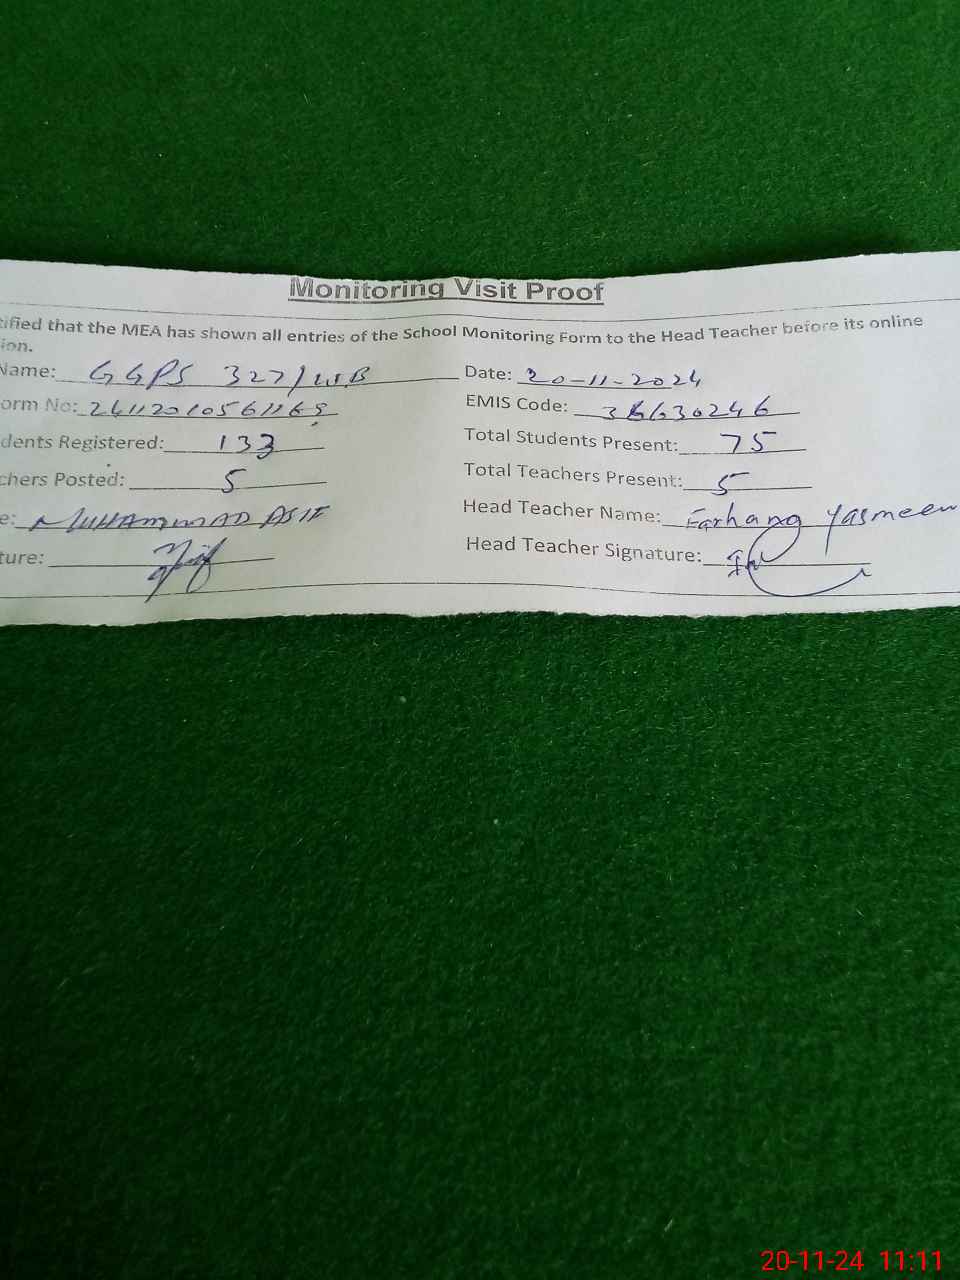 Monitoring Visit Proof
tified that the MEA has shown all entries of the School Monitoring Form to the Head Teacher before its online
ion.
Name: GGPS 327/WB Date: 20-11-2024
orm No: EMIS Code: 36630246
dents Registered: 133 Total Students Present: 75
chers Posted: 5 Total Teachers Present: 5
e: MUHAMMAD ASIF Head Teacher Name: Farhang Yasmeen
ture: Head Teacher Signature:
20-11-24 11:11